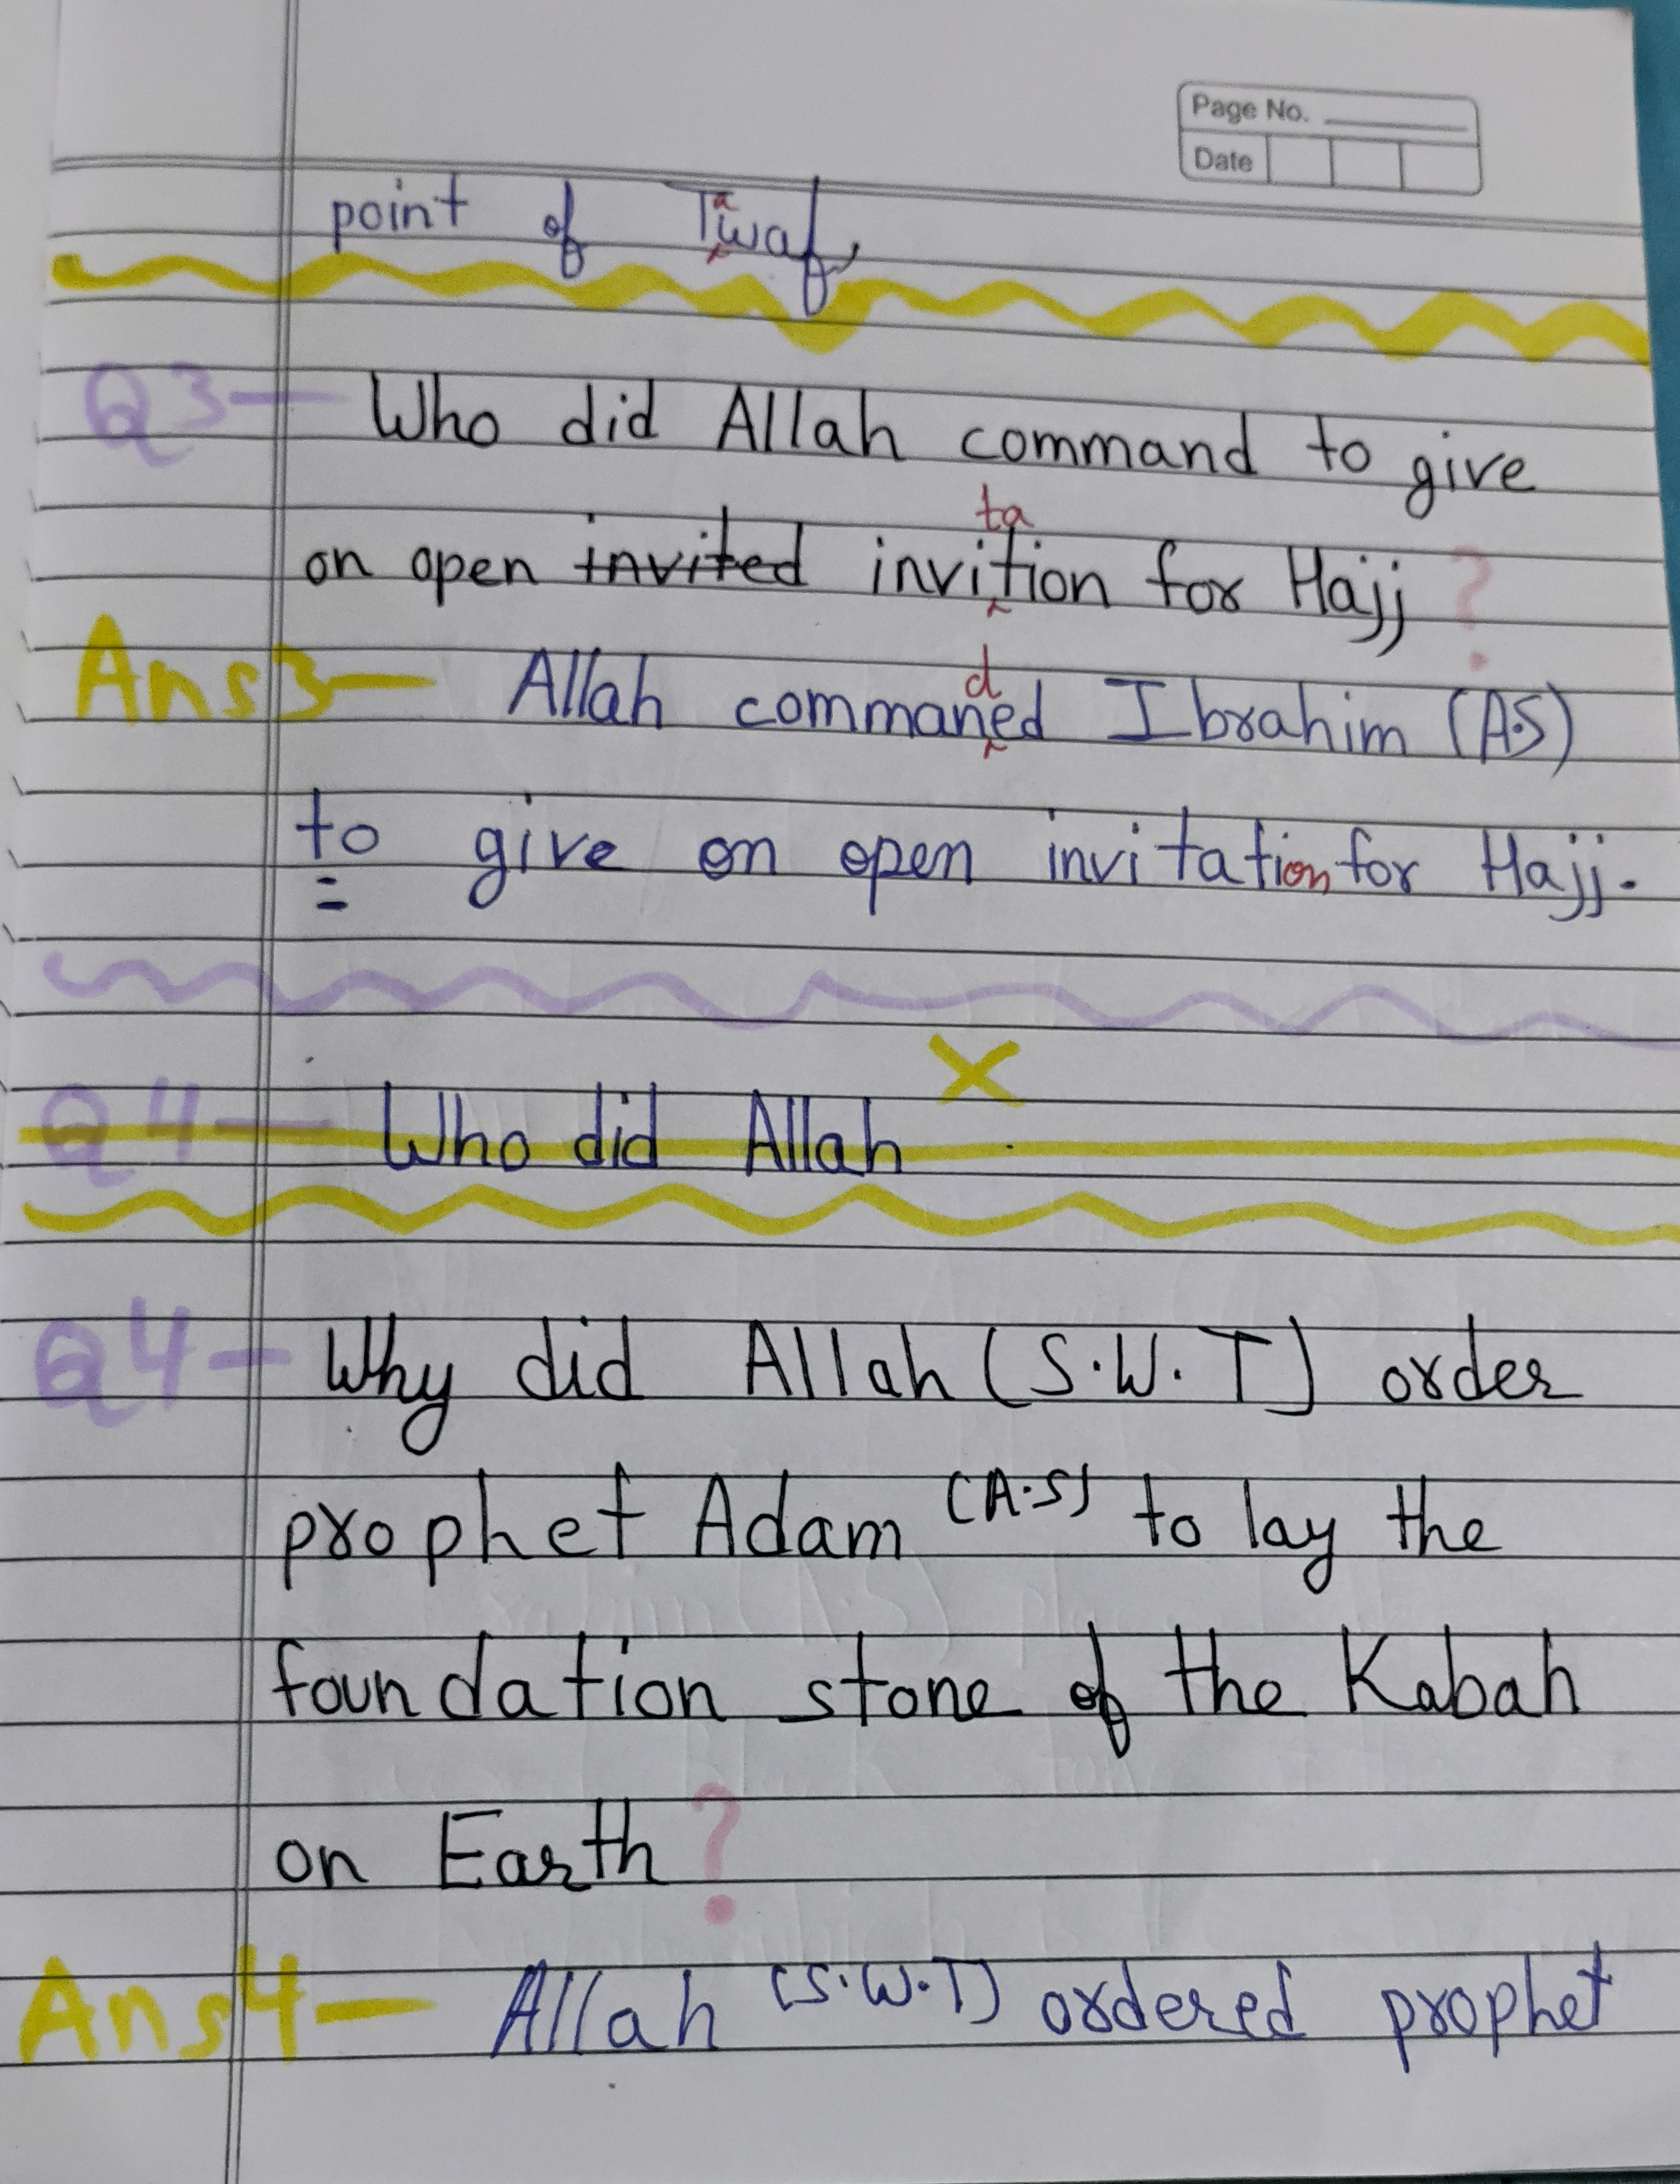 Page No.
Date
point of Tawaf,
Q3— Who did Allah command to give
on open invited invitation for Hajj ?
Ans3— Allah commanded Ibrahim (A.S)
to give on open invitation for Hajj.
Q4— Who did Allah
Q4— Why did Allah (S.W.T) order
prophet Adam (A.S) to lay the
foundation stone of the Kabah
on Earth ?
Ans4— Allah (S.W.T) ordered prophet